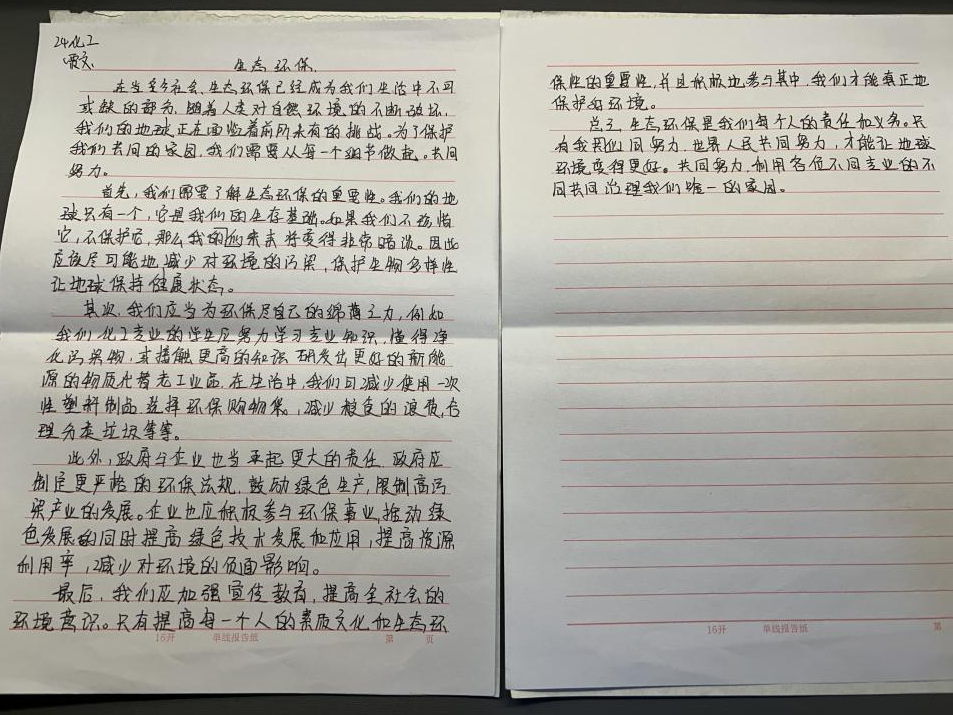 24化工
生态环保.
在当今社会,生态环保已经成为我们生活中不可
或缺的部分,随着人类对自然环境的不断破坏,
我们的地球正在面临着前所未有的挑战。为了保护
我们共同的家园,我们需要从每一个细节做起。共同
努力。
首先,我们需要了解生态环保的重要性。我们的地
球只有一个,它是我们的生存基础。如果我们不珍惜
它,不保护它,那么我们的未来将变得非常暗淡。因此
应该尽可能地减少对环境的污染,保护生物多样性
让地球保持健康状态。
其次,我们应当为环保尽自己的绵薄之力,例如
我们化工专业的学生应努力学习专业知识,懂得净
化污染物,或接触更高的知识 研发出更好的新能
源的物质代替老工业品,在生活中,我们可减少使用一次
性塑料制品 选择环保购物袋,减少粮食的浪费,合
理分类垃圾等等。
此外,政府与企业也当承起更大的责任,政府应
制定更严格的环保法规,鼓励绿色生产,限制高污
染产业的发展。企业也应积极参与环保事业,推动绿
色发展的同时提高绿色技术发展和应用,提高资源
利用率,减少对环境的负面影响。
最后,我们应加强宣传教育,提高全社会的
环境意识。只有提高每一个人的素质文化和生态环
16开 单线报告纸 第 页
保性的重要性,并且积极地参与其中,我们才能真正地
保护好环境。
总之,生态环保是我们每个人的责任和义务。只
有我们共同努力,世界人民共同努力,才能让地球
环境变得更好。共同努力,利用各位不同专业的不
同共同治理我们唯一的家园。
16开 单线报告纸 第